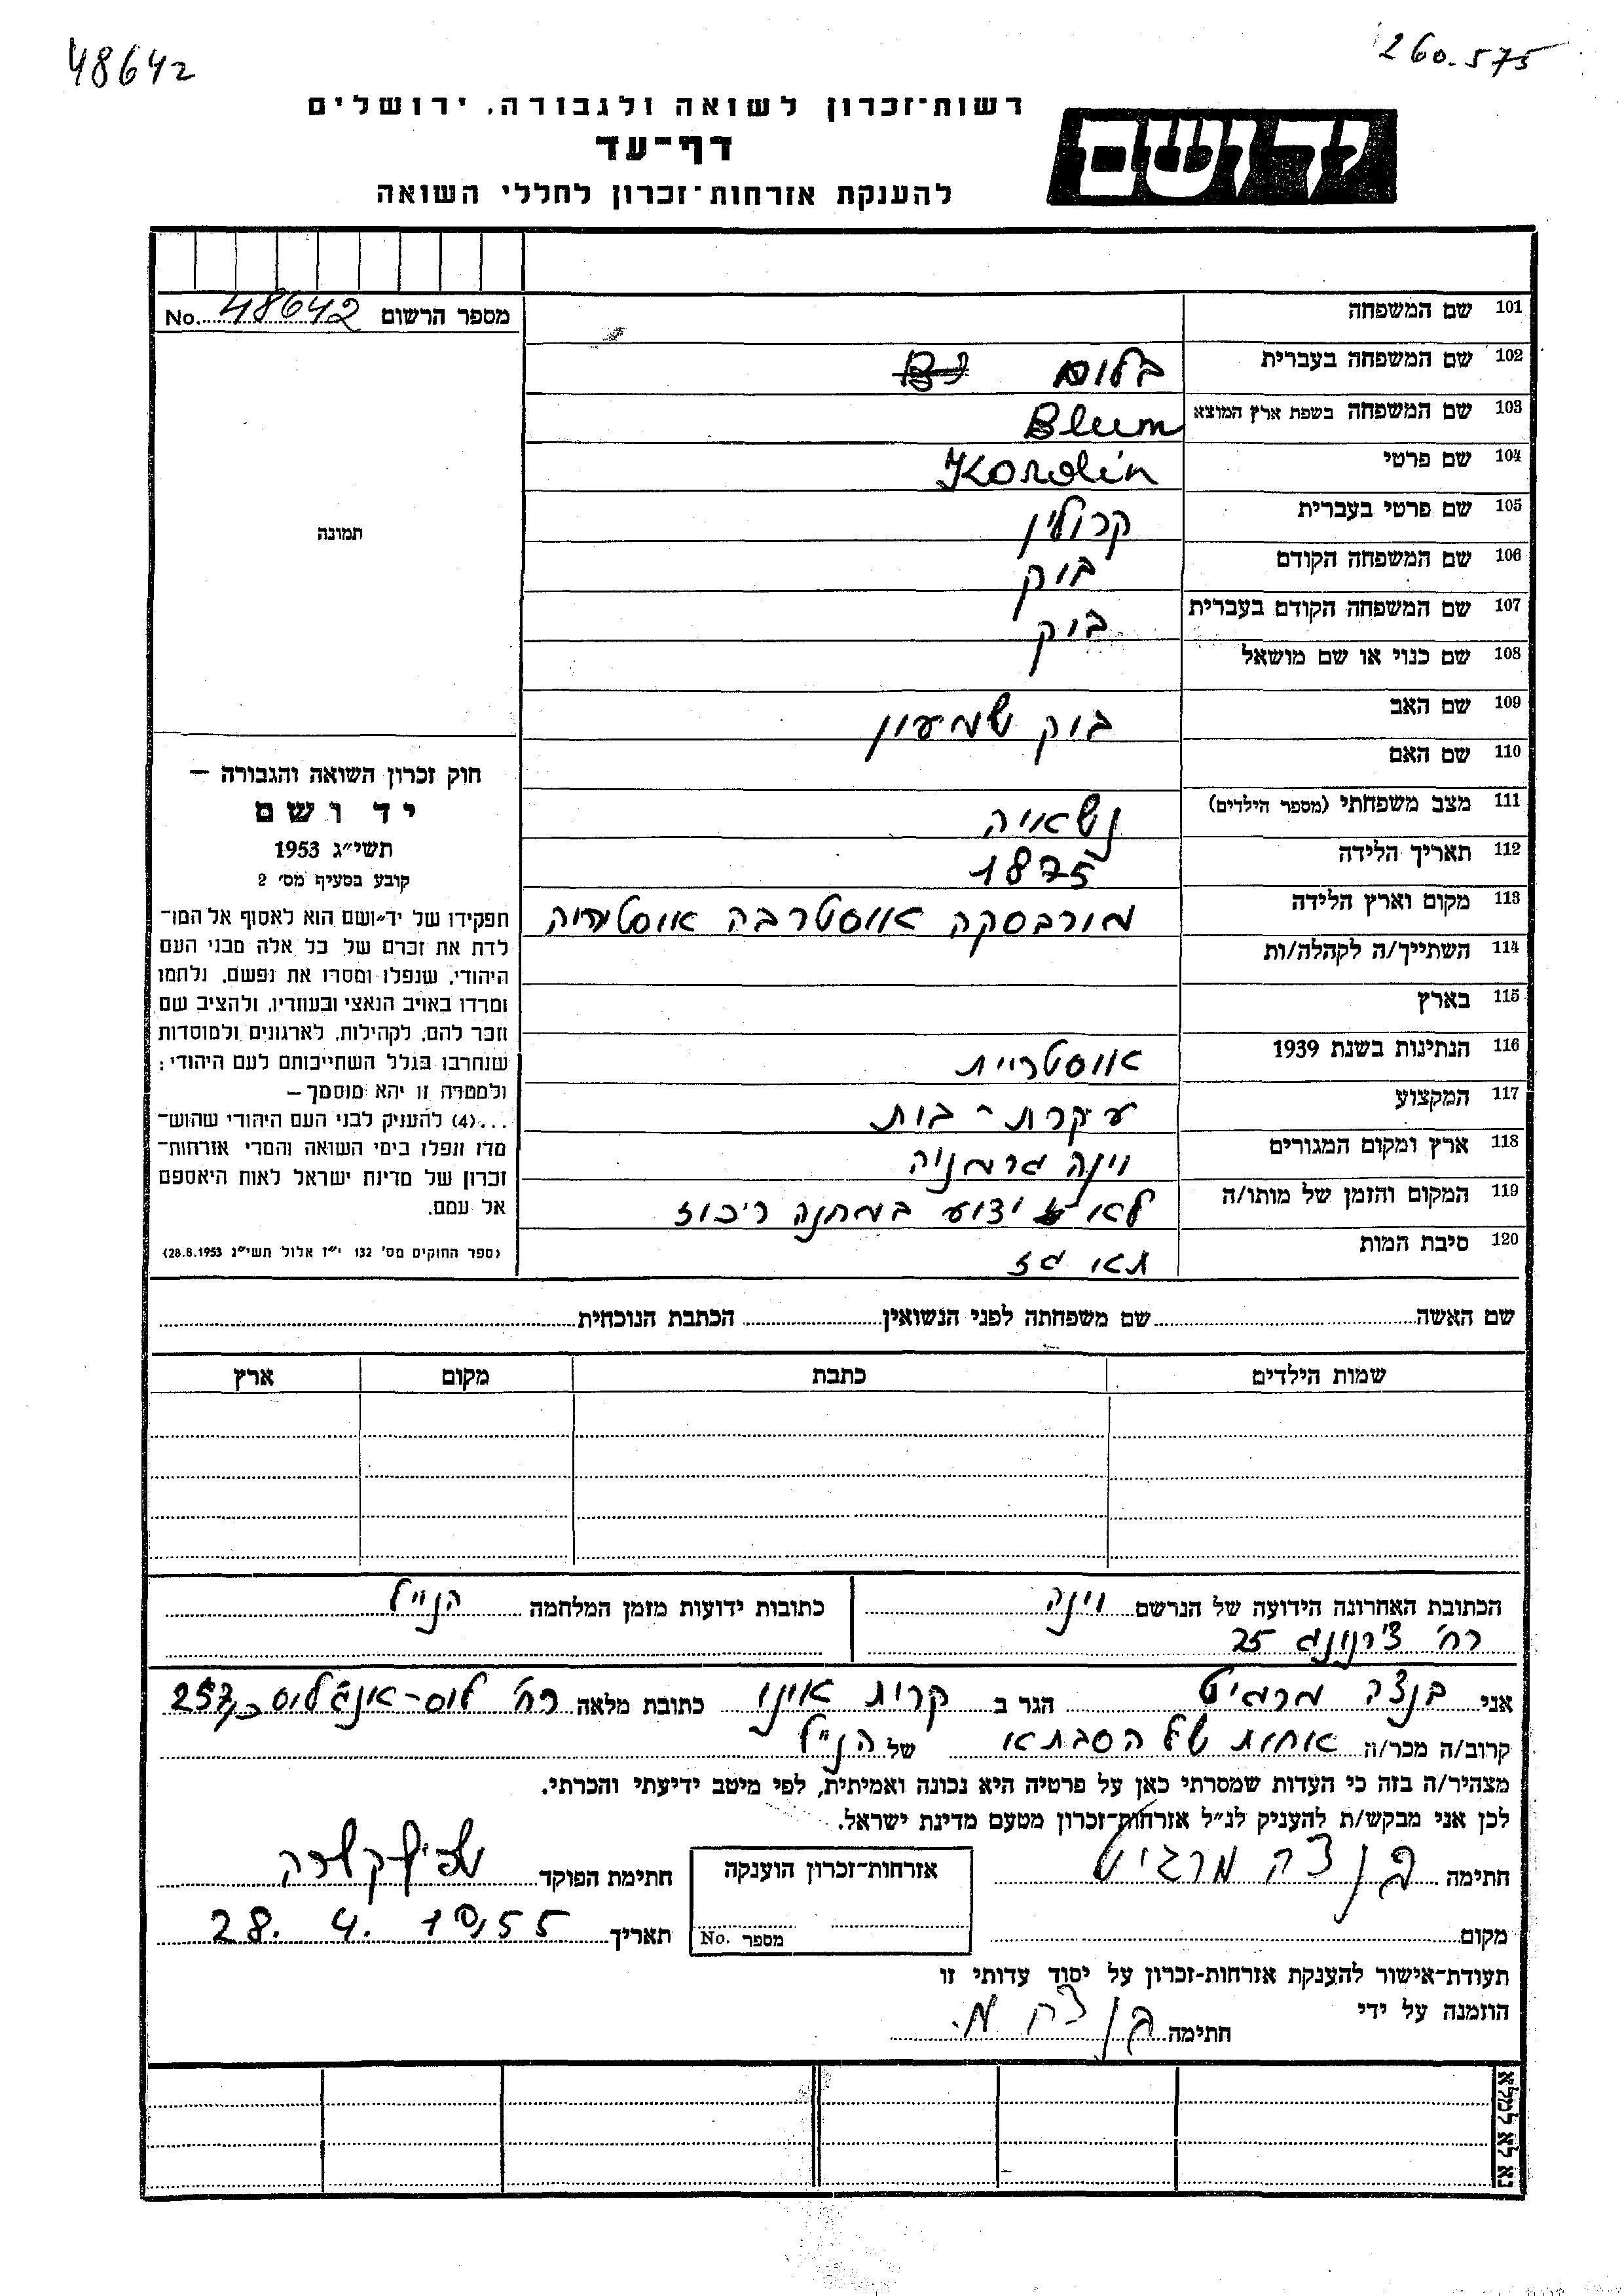 48642
260.575
רשות־זכרון לשואה ולגבורה, ירושלים
יד ושם
דף־עד
להענקת אזרחות־זכרון לחללי השואה
מספר הרשום No. 48642
תמונה
101 שם המשפחה
102 שם המשפחה בעברית בלום
103 שם המשפחה בשפת ארץ המוצא Blum
104 שם פרטי Korolin
105 שם פרטי בעברית קרולין
106 שם המשפחה הקודם בוק
107 שם המשפחה הקודם בעברית בוק
108 שם כנוי או שם מושאל
109 שם האב בוק שמעון
110 שם האם
111 מצב משפחתי (מספר הילדים) נשאויה
112 תאריך הלידה 1875
113 מקום וארץ הלידה מורבסקה אווסטרבה אוסטריה
114 השתייך/ה לקהלה/ות
115 בארץ
116 הנתינות בשנת 1939 אווסטריית
117 המקצוע עקרת-בות
118 ארץ ומקום המגורים וינה גרמניה
119 המקום והזמן של מותו/ה לא ידוע במחנה ריכוז
120 סיבת המות תאו גז
חוק זכרון השואה והגבורה –
יד ושם
תשי״ג 1953
קובע בסעיף מס׳ 2
תפקידו של יד־ושם הוא לאסוף אל המו־
לדת את זכרם של כל אלה מבני העם
היהודי, שנפלו ומסרו את נפשם, נלחמו
ומרדו באויב הנאצי ובעוזריו, ולהציב שם
וזכר להם, לקהילות, לארגונים ולמוסדות
שנחרבו בגלל השתייכותם לעם היהודי;
ולמטרה זו יהא מוסמך –
...(4) להעניק לבני העם היהודי שהוש־
מדו ונפלו בימי השואה והמרי אזרחות־
זכרון של מדינת ישראל לאות היאספם
אל עמם.
(ספר החוקים מס׳ 132 י״ז אלול תשי״ג 28.8.1953)
שם האשה שם משפחתה לפני הנשואין הכתבת הנוכחית
שמות הילדים כתבת מקום ארץ
הכתובת האחרונה הידועה של הנרשם וינה
רח׳ צ׳רנינג 25
כתובות ידועות מזמן המלחמה הנ״ל
אני בנצה מרגיט הגר ב קרית אונו כתובת מלאה רח׳ לוס-אנג׳לוס 257
קרוב/ה מכר/ה אחות של הסבתא של הנ״ל
מצהיר/ה בזה כי העדות שמסרתי כאן על פרטיה היא נכונה ואמיתית, לפי מיטב ידיעתי והכרתי.
לכן אני מבקש/ת להעניק לנ״ל אזרחות־זכרון מטעם מדינת ישראל.
חתימה בנצה מרגיט
אזרחות־זכרון הוענקה
מספר No.
חתימת הפוקד
מקום
תאריך 28. 4. 1955
תעודת־אישור להענקת אזרחות-זכרון על יסוד עדותי זו
הוזמנה על ידי
חתימה בנצה מ.
נא לא למלא